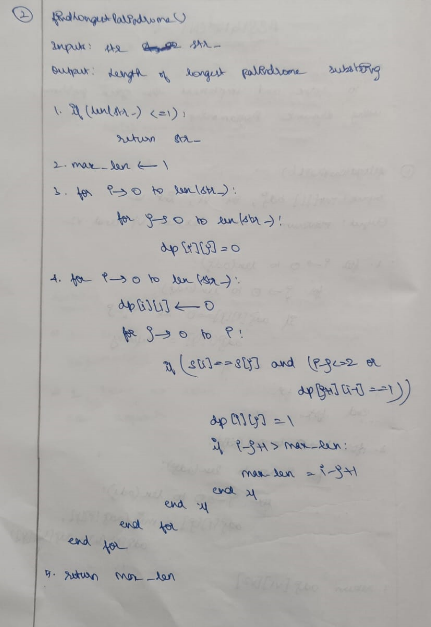 2 findLongestPalindrome()
Input: str_
Output: Length of longest palindrome substring
1. if (len(str_) <=1):
return str_
2. max_len ← 1
3. for i→0 to len(str_):
for j→0 to len(str_):
dp[i][j]=0
4. for i→0 to len(str_):
dp[i][i] ← 0
for j→0 to i:
if (s[i]==s[j] and (i-j<=2 or
dp[j+1][i-1]==1))
dp[i][j]=1
if i-j+1 > max_len:
max_len = i-j+1
end if
end if
end for
end for
5. return max_len